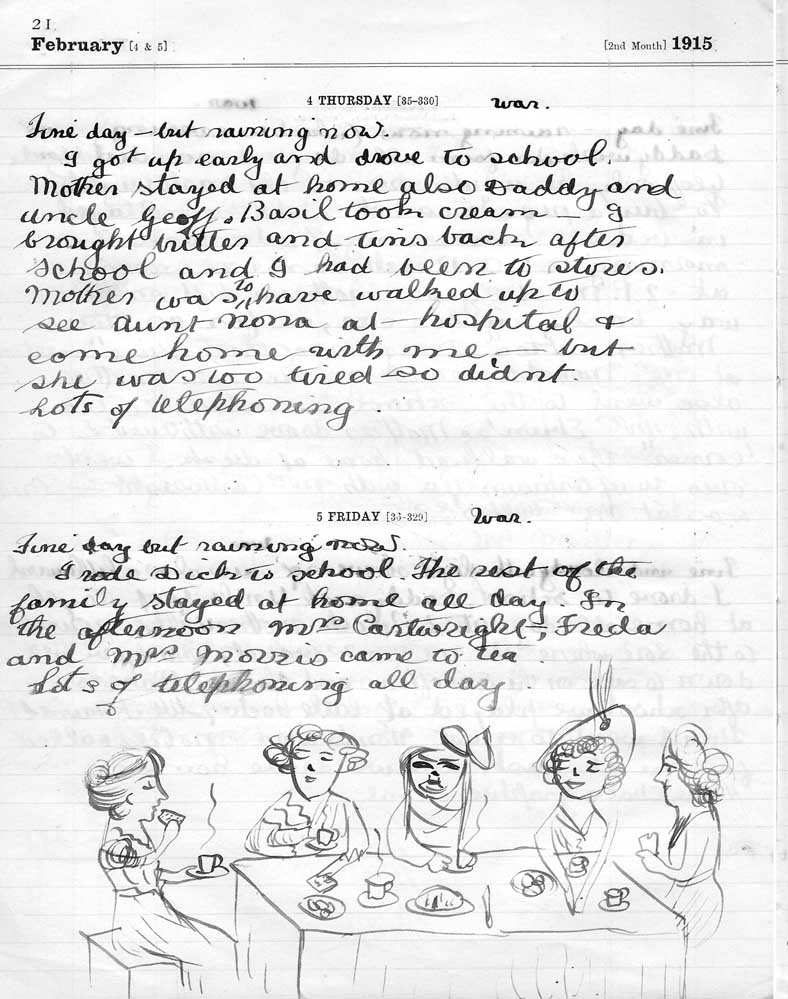 21
February [4 & 5] [2nd Month] 1915
4 THURSDAY [35-330] War.
Fine day - but raining now.
I got up early and drove to school.
Mother stayed at home also Daddy and
uncle Geoff. Basil took cream - I
brought butter and tins back after
school and I had been to stores.
Mother was to have walked up to
see Aunt Nona at hospital &
come home with me, but
she was too tired so didnt.
Lots of telephoning.
5 FRIDAY [36-329] War.
Fine day but raining now.
I rode Dick to school. The rest of the
family stayed at home all day. In
the afternoon Mrs Cartwright, Freda
and Mrs Morris came to tea.
Lots of telephoning all day.